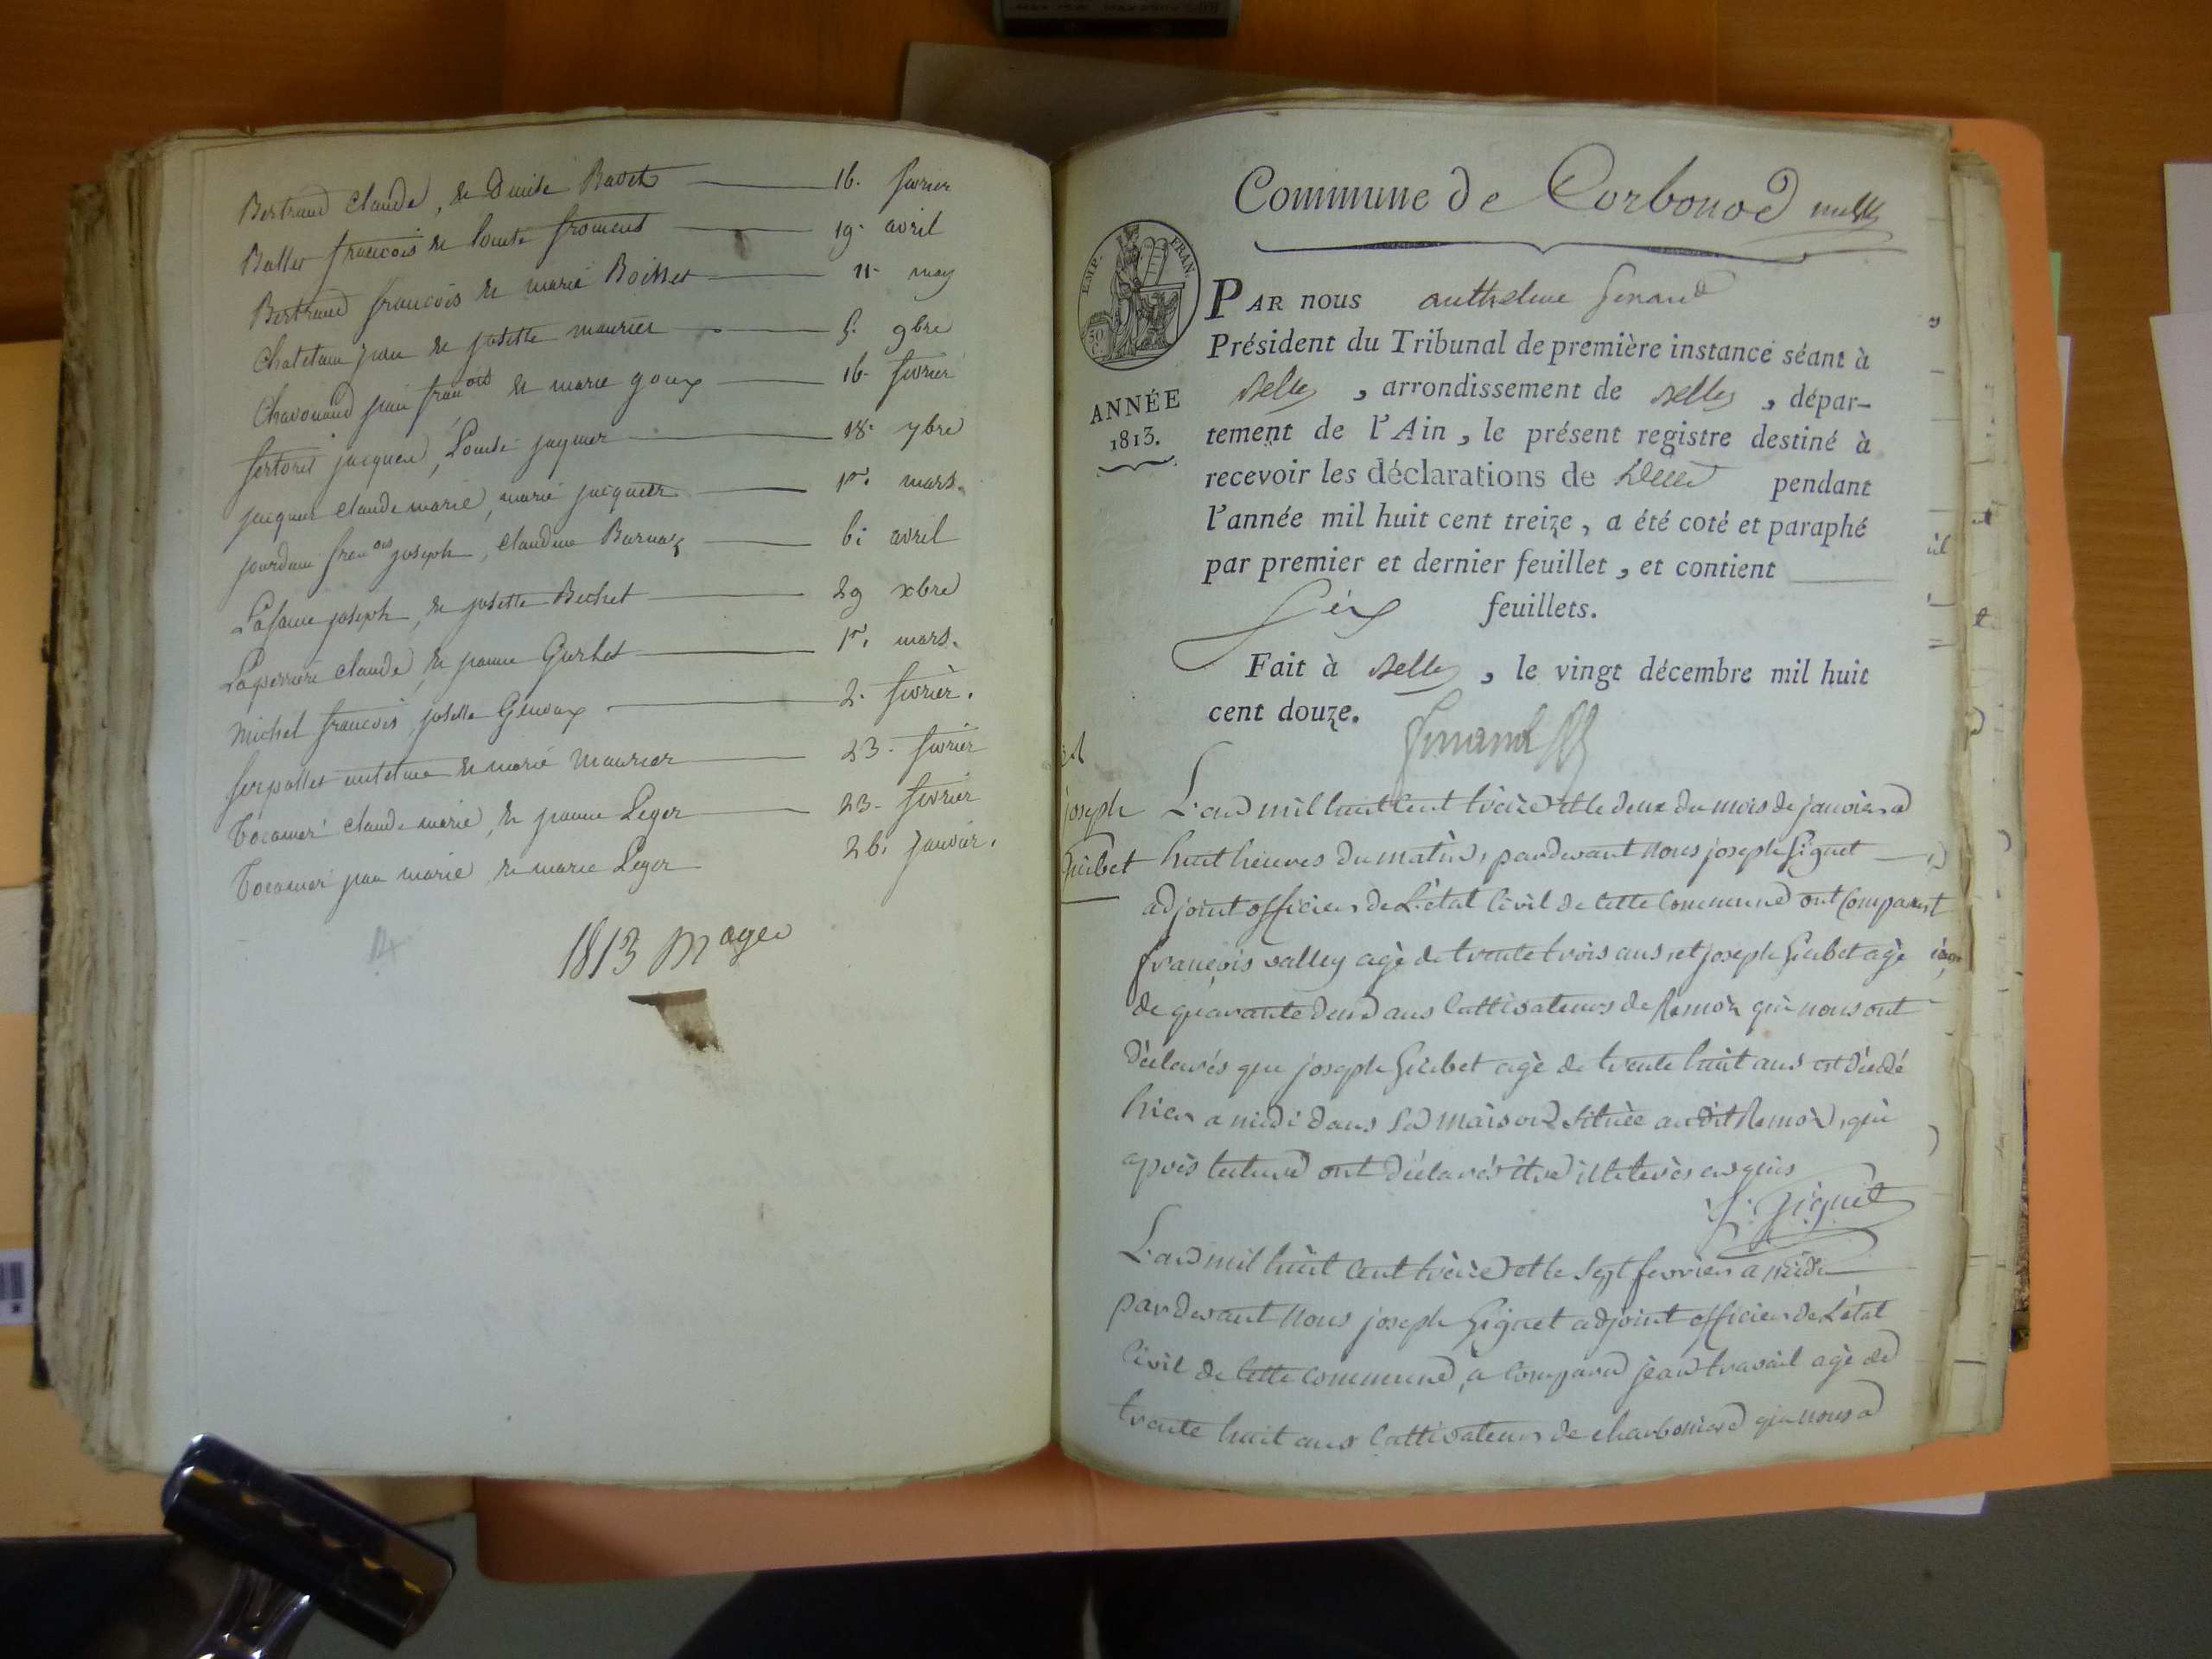 Bertrand Claude, & Bavet 16. fevrier
Ballet françois & Louise froment 19. avril
Bertrand françois & marie Boisset 11. may
Chatelain & josette maurier 5. 9bre
Chavonand jean franois & marie goux 16. fevrier
fertoret jacques, Louise jaquier 18. 7bre
jaques claude marie, marie jacquier 1er. mars.
jourdan franois joseph, Claudine Burnaz 6. avril
joseph, & josette Bechet 29 xbre
Laperriere claude, & jeanne Guerbet 1er. mars.
Michel françois, josette Genoux 2. fevrier.
serpollet antelme & marie Maurier 23. fevrier
Bocaneri claude marie, & jeanne Leger 23. fevrier
Bocaneri marie & marie Leger 26. janvier.
1813
Commune de Corbonod
EMP. FRAN.
50 C.
PAR nous anthelme
Président du Tribunal de première instance séant à
Belley, arrondissement de Belley, dépar-
ANNÉE
1813.
tement de l'Ain, le présent registre destiné à
recevoir les déclarations de Décès pendant
l'année mil huit cent treize, a été coté et paraphé
par premier et dernier feuillet, et contient
Six feuillets.
Fait à Belley, le vingt décembre mil huit
cent douze.
joseph
Guibet
L'an mil huit Cent treize et le deux du mois de janvier a
huit heures du matin, pardevant nous joseph Gignet
adjoint officier de L'état Civil de Cette Commune ont Comparut
françois valley agé de trente trois ans, et joseph Guibet agé
de quarante deux ans Cultivateurs de Remoz qui nous ont
déclarés que joseph Guibet agé de trente huit ans est décédé
hier a midi dans Sa maison Située au dit Remoz, qui
après lecture ont déclarés être illeterés enquis
J. Gignet
L'an mil huit Cent treize et le Sept fevrier a midi
pardevant Nous joseph Gignet adjoint officier de L'état
Civil de Cette Commune, a Comparu jean travail agé de
trente huit ans Cultivateur de charboniere qui nous a